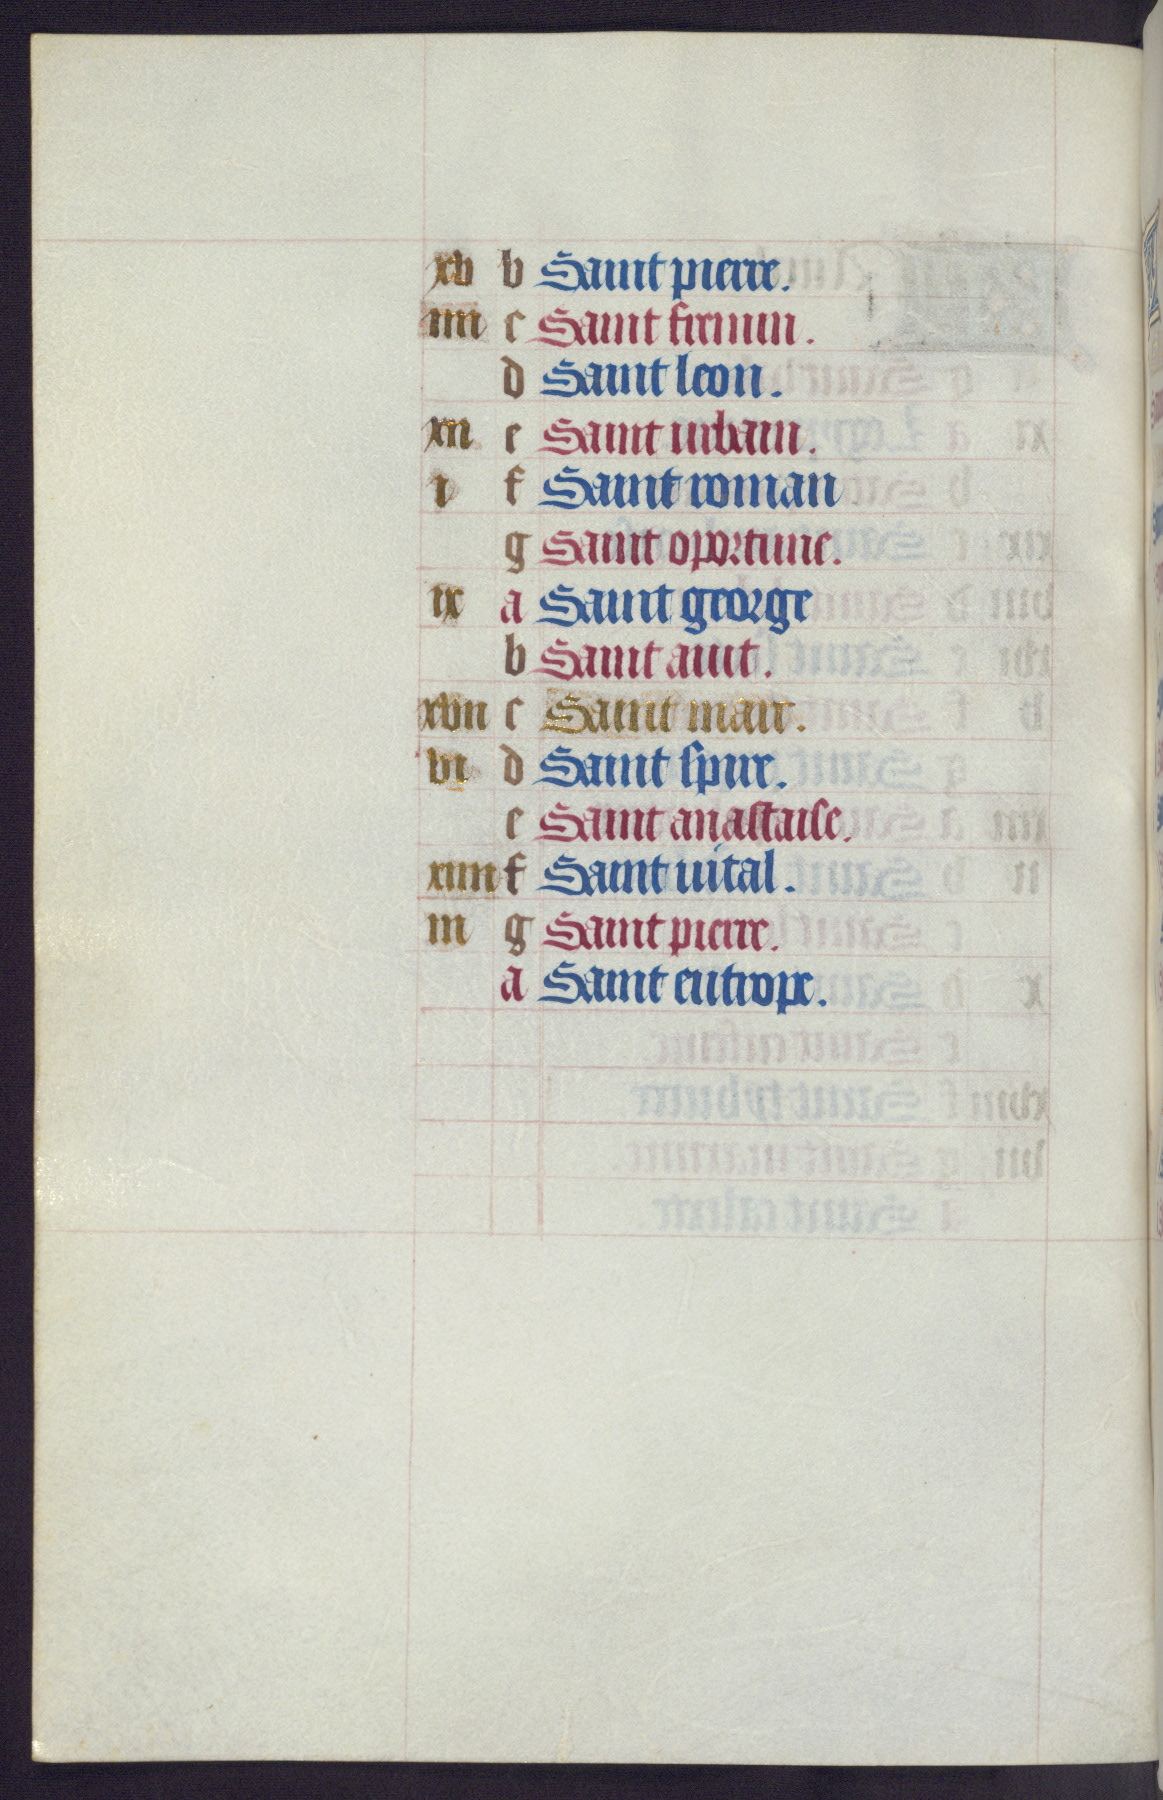 xv b Saint pierre.
iiii c Saint firmin.
d Saint leon.
xii e Saint urbain.
i f Saint roman
g Saint oportune.
ix a Saint george
b Saint auit.
xvii c Saint marc.
vi d Saint spire.
e Saint anastaise.
xiiii f Saint uital.
iii g Saint pierre.
a Saint eutrope.